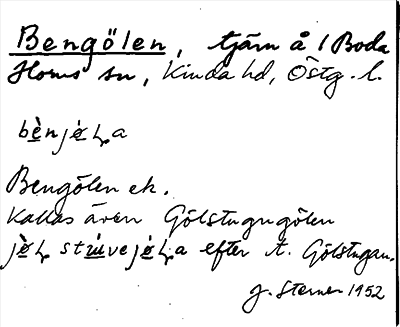 Bengölen, tjärn å / Boda
Horns sn, Kinda hd, Östg. l.
bènjèLa
Bengölen ek.
Kallas även Gölstugugölen
jèL strùvejèLa efter t. Gölstugan.
J. Sterner 1952